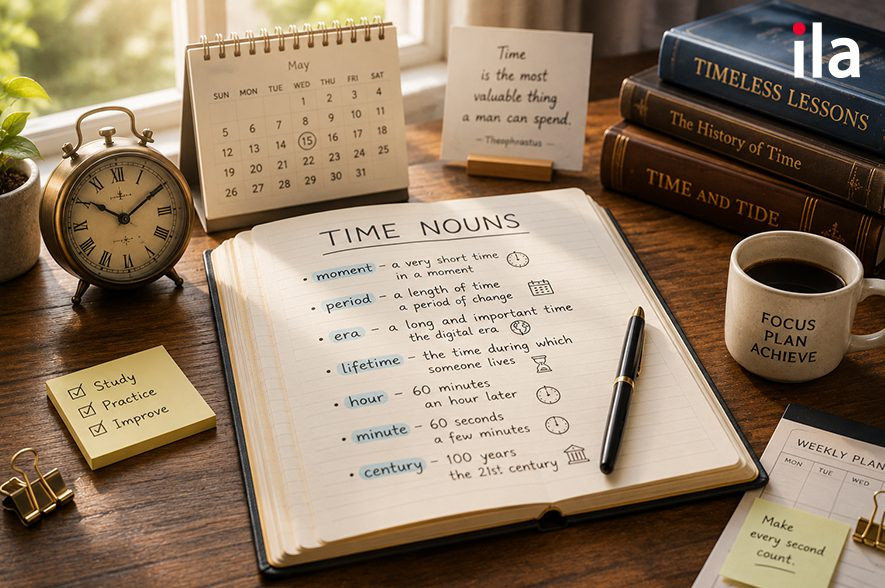 ila
May
SUN MON TUE WED THU FRI SAT
1 2 3 4
5 6 7 8 9 10 11
12 13 14 15 16 17 18
19 20 21 22 23 24 25
26 27 28 29 30 31
Time
is the most
valuable thing
a man can spend.
— Theophrastus —
TIMELESS LESSONS
The History of Time
TIME AND TIDE
XII
TIME NOUNS
• moment – a very short time
in a moment
• period – a length of time
a period of change
• era – a long and important time
the digital era
• lifetime – the time during which
someone lives
• hour – 60 minutes
an hour later
• minute – 60 seconds
a few minutes
• century – 100 years
the 21st century
Study
Practice
Improve
FOCUS
PLAN
ACHIEVE
WEEKLY PLAN
MON TUE WED
Make
every second
count.